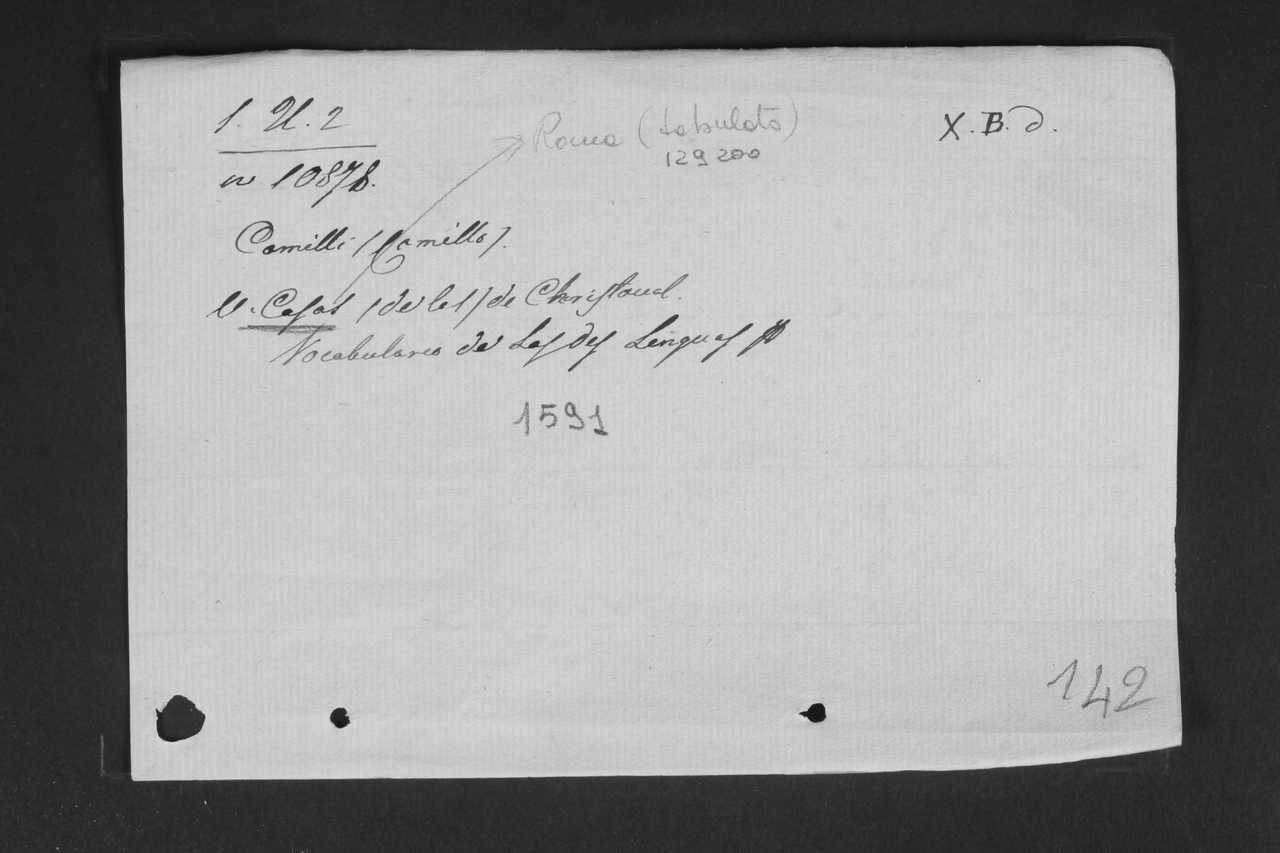 1. U. 2
Roma (tabulato)
129200
X. B. d.
n 10878.
Camilli (Camillo).
V. Casas (de las) de Christoual.
Vocabulario de las dos Lenguas
1591
142